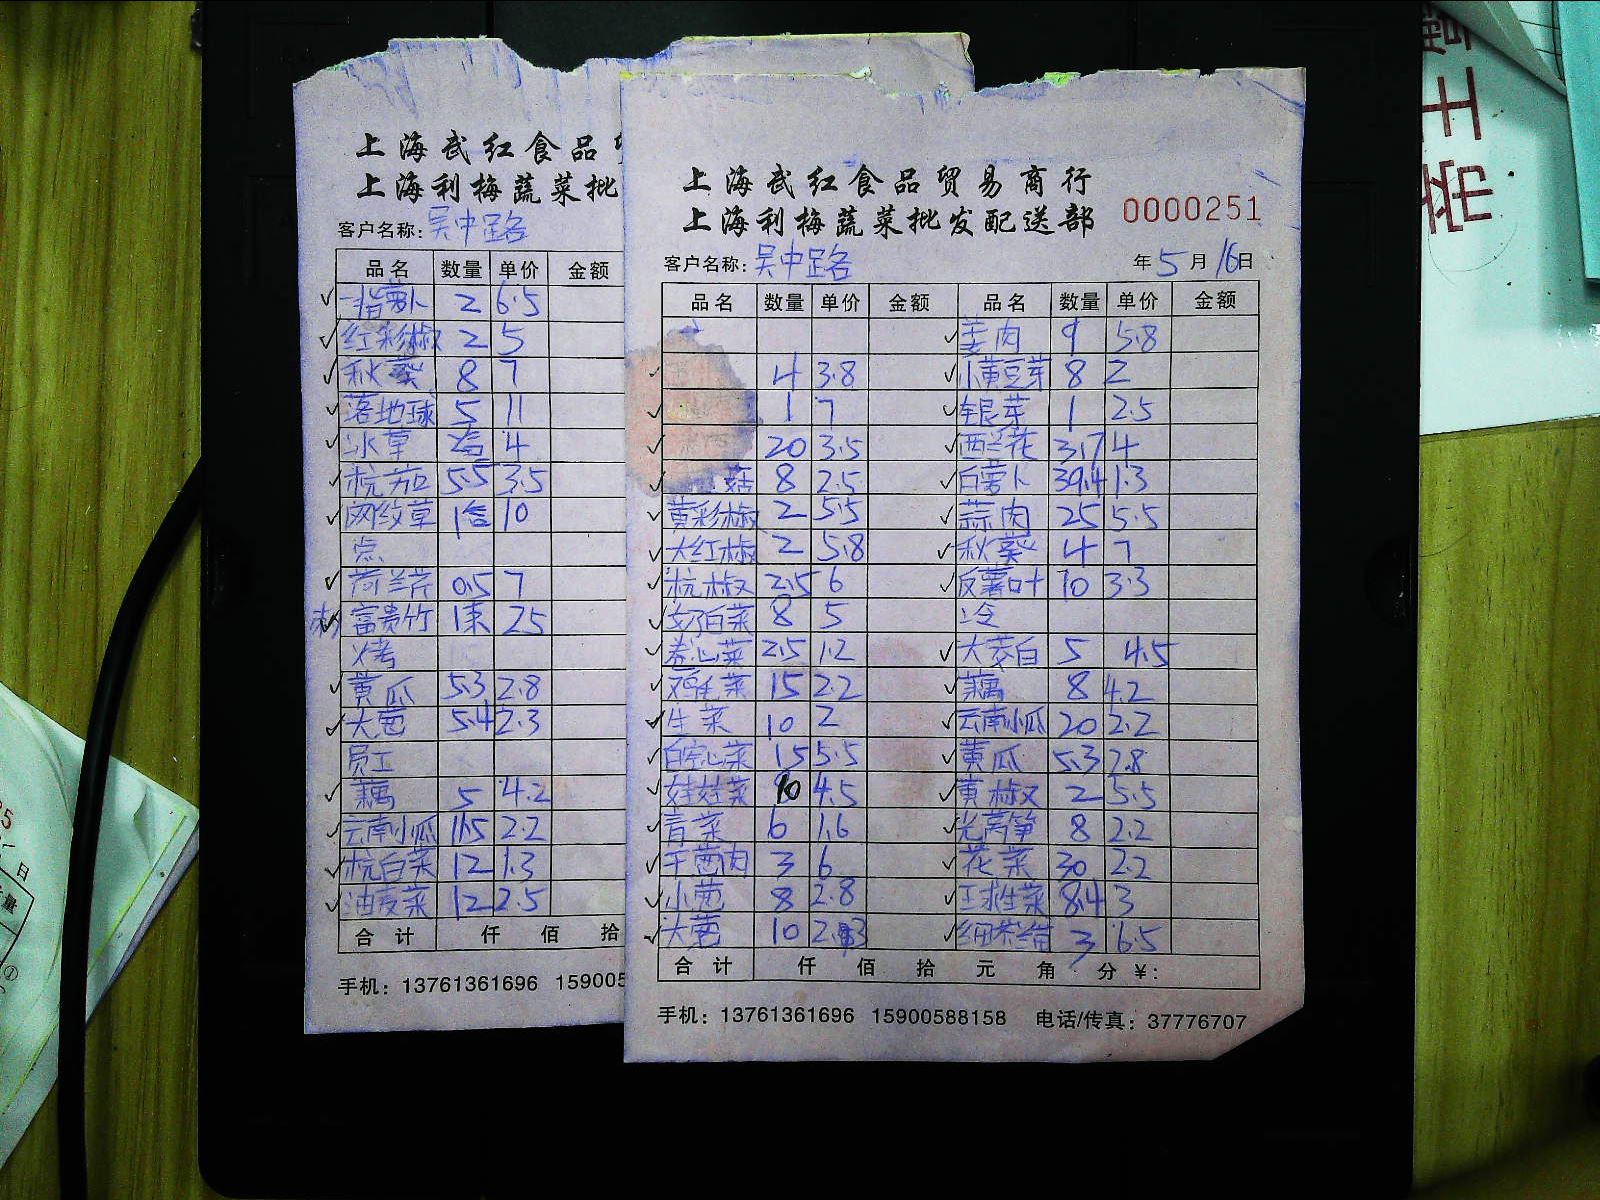 上海武红食品
上海利梅蔬菜批
客户名称：吴中路
品名 数量 单价 金额
一指萝卜 2 6.5
红彩椒 2 5
秋葵 8 7
落地球 5 11
冰草 2盒 4
杭茄 5.5 3.5
网纹草 1盒 10
点
荷兰芹 0.5 7
富贵竹 1束 25
烤
黄瓜 5.3 2.8
大葱 5.4 2.3
员工
藕 5 4.2
云南小瓜 11.5 2.2
杭白菜 12 1.3
油麦菜 12 2.5
合计 仟 佰 拾
手机：13761361696 159005
上海武红食品贸易商行
上海利梅蔬菜批发配送部 0000251
客户名称：吴中路 年 5 月 16 日
品名 数量 单价 金额 品名 数量 单价 金额
姜肉 9 5.8
4 3.8 小黄豆芽 8 2
1 7 银芽 1 2.5
20 3.5 西兰花 3.7 4
菇 8 2.5 白萝卜 39.4 1.3
黄彩椒 2 5.5 蒜肉 25 5.5
大红椒 2 5.8 秋葵 4 7
杭椒 2.5 6 反薯叶 10 3.3
奶白菜 8 5 冷
卷心菜 2.5 1.2 大茭白 5 4.5
鸡毛菜 15 2.2 藕 8 4.2
生菜 10 2 云南小瓜 20 2.2
白空心菜 15 5.5 黄瓜 5.3 2.8
娃娃菜 10 4.5 黄椒 2 5.5
青菜 6 1.6 光莴笋 8 2.2
干茴肉 3 6 花菜 30 2.2
小葱 8 2.8 王球生菜 8.4 3
大葱 10 2.3 3 6.5
合计 仟 佰 拾 元 角 分 ¥:
手机：13761361696 15900588158 电话/传真：37776707
帝王